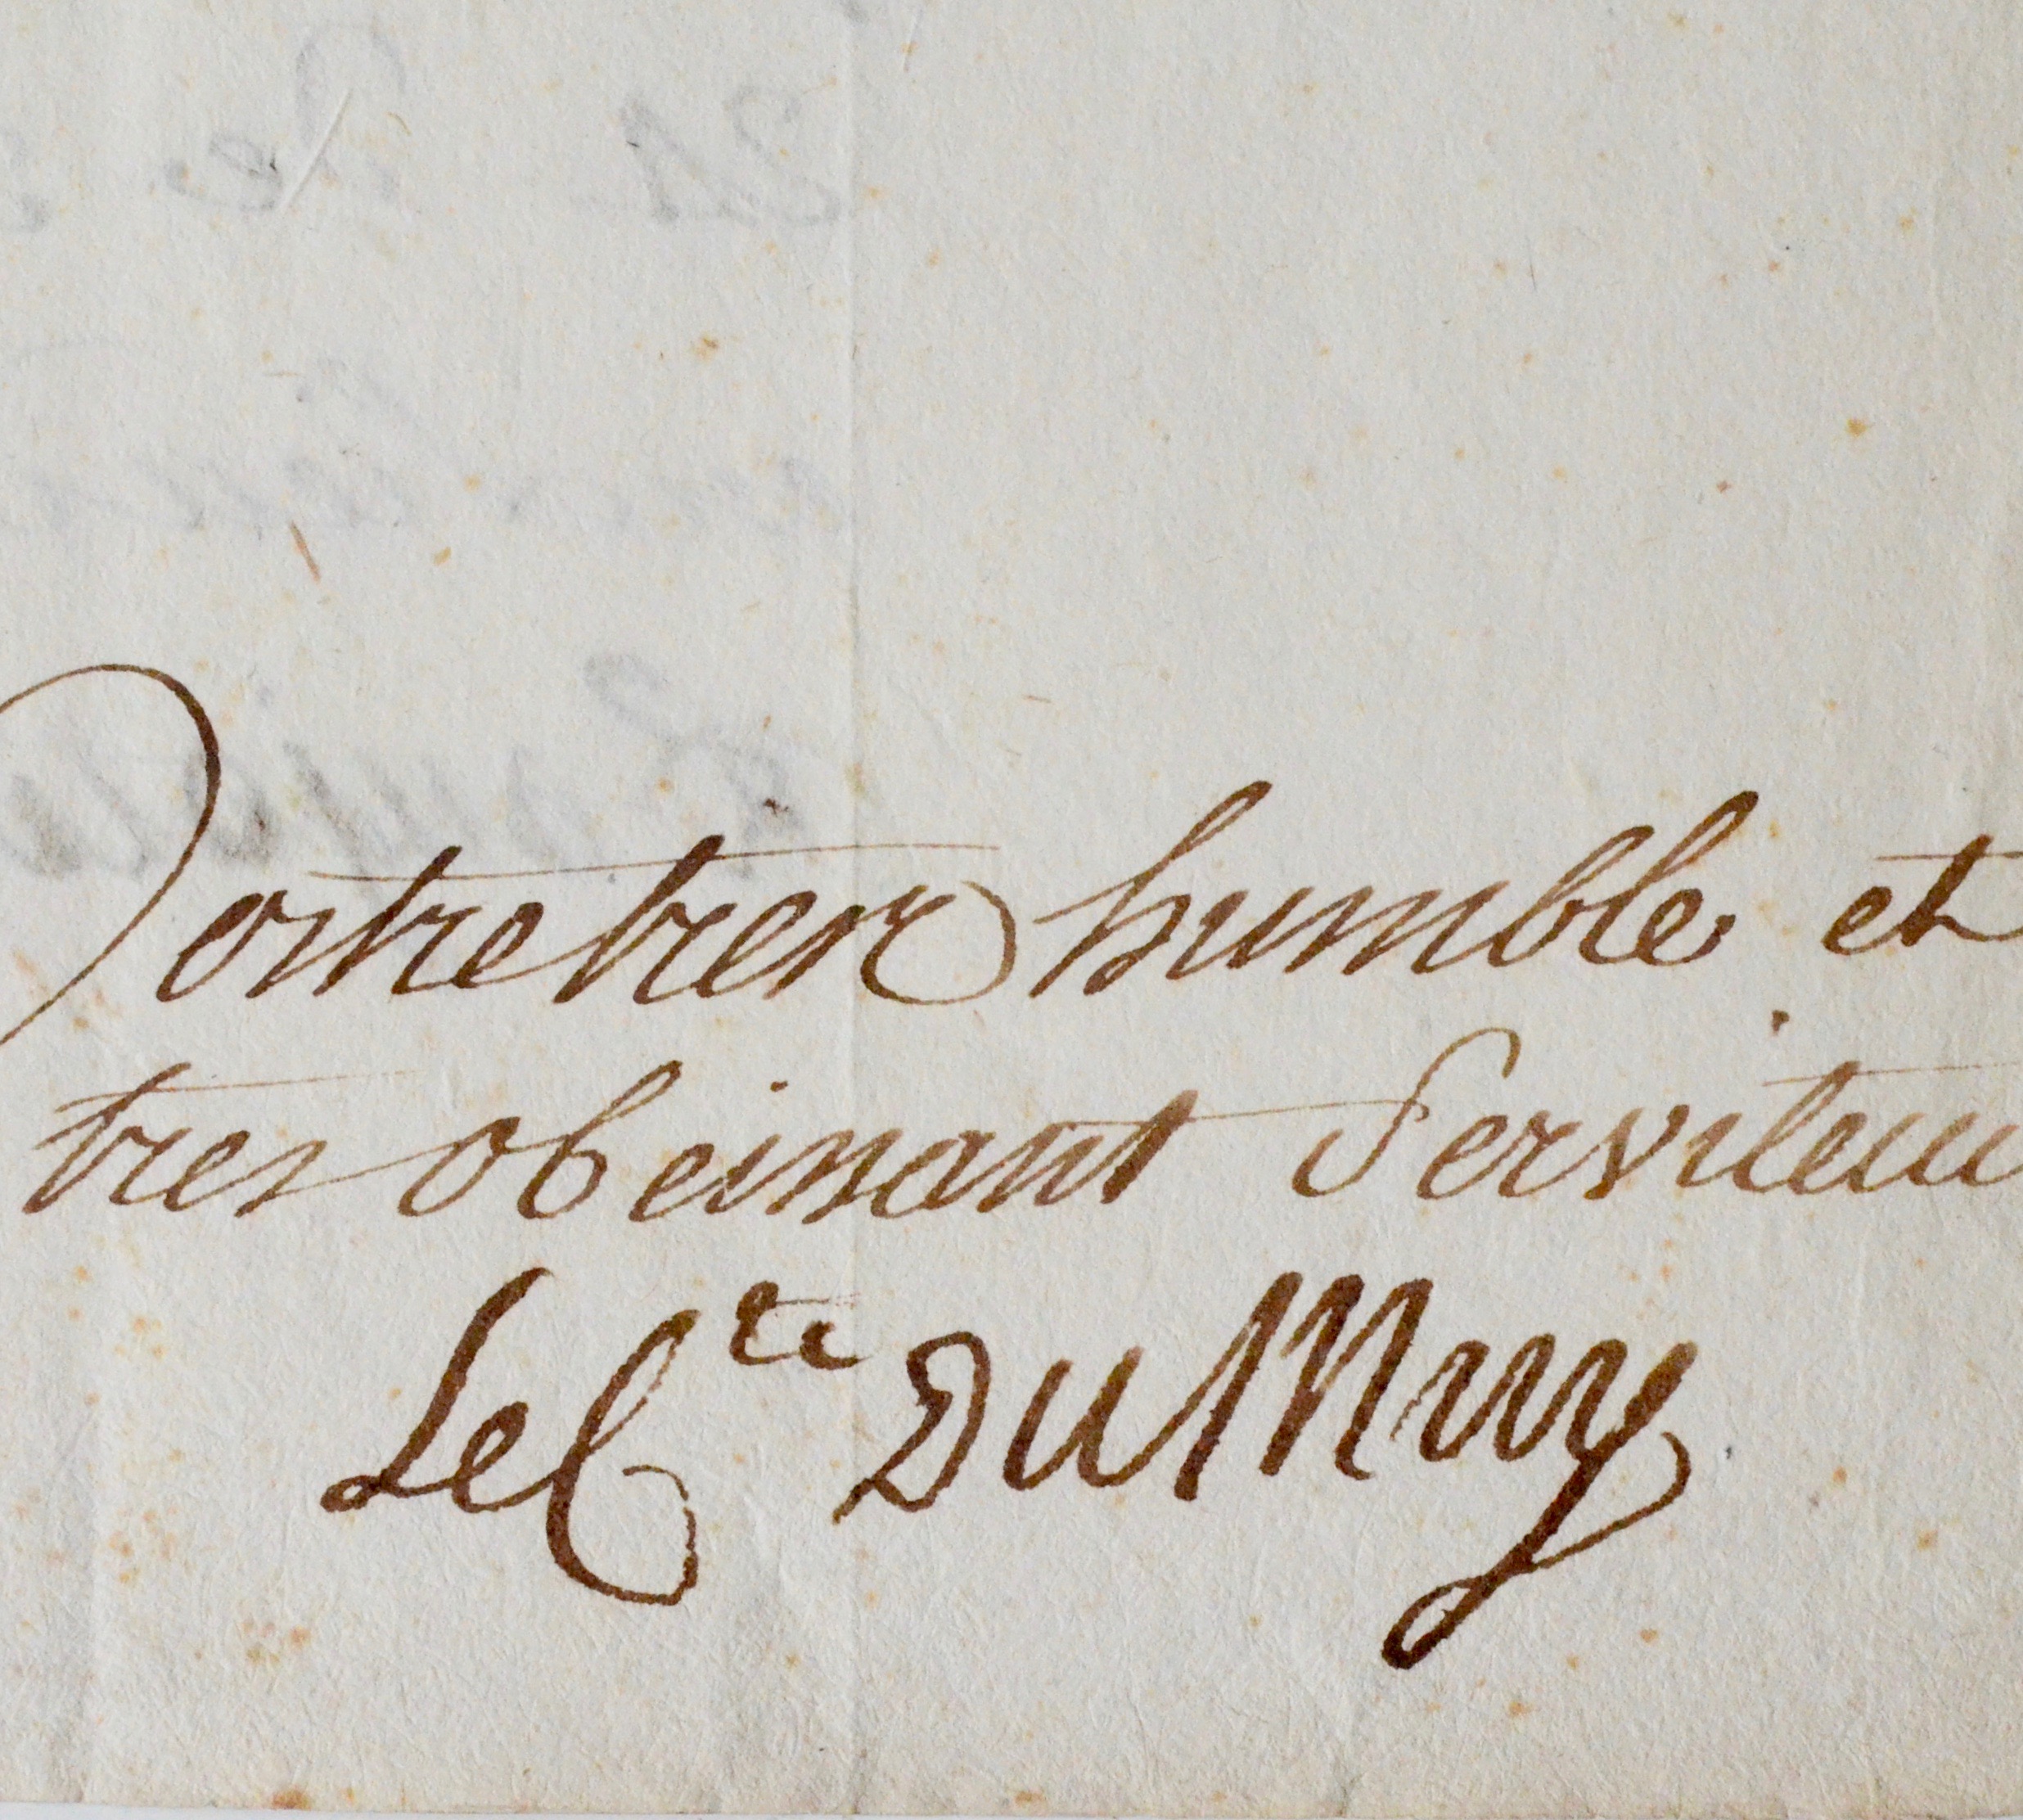 Vostre tres humble et
tres obeissant Serviteur
Le Cte Du Muy